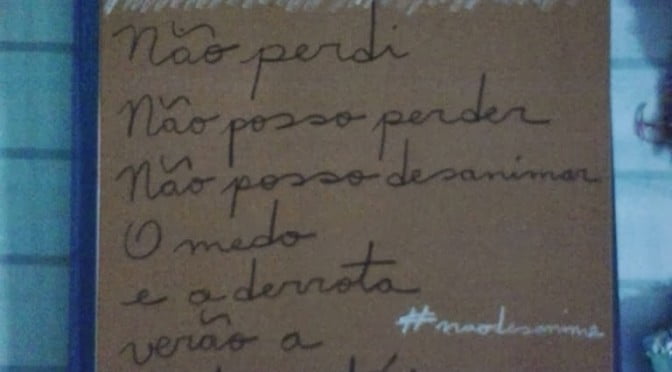 Não perdi
Não posso perder
Não posso desanimar
O medo
e a derrota
verão a
#naodesanime